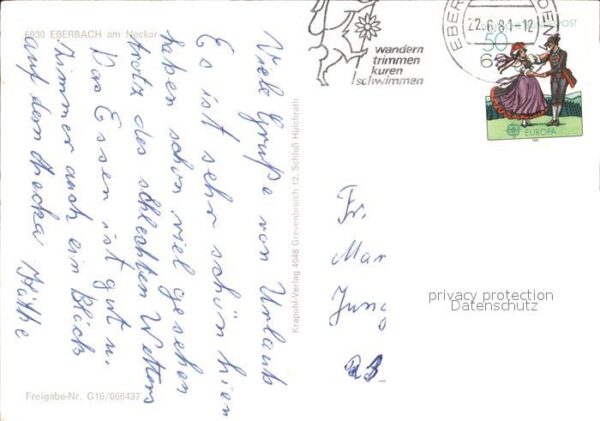 6930 EBERBACH am Neckar
Viele Grüße von Urlaub
Es ist sehr schön hier
haben schon viel gesehen
trotz des schlechten Wetters
Das Essen ist gut u.
Zimmer auch ein Blick
auf den Necka Käthe
Freigabe-Nr. G16/066437
Krapohl-Verlag 4048 Grevenbroich 12, Schloß Hülchrath
wandern
trimmen
kuren
schwimmen
22.6.81-12
50
EUROPA
Fr.
Mar
Jung
privacy protection
Datenschutz